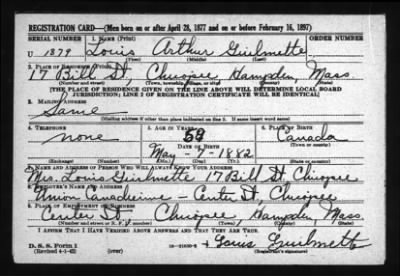 REGISTRATION CARD—(Men born on or after April 28, 1877 and on or before February 16, 1897)
SERIAL NUMBER 1. NAME (Print) ORDER NUMBER
U 1879 Louis Arthur Guilmette
(First) (Middle) (Last)
2. PLACE OF RESIDENCE (Print)
17 Bill St, Chicopee Hampden, Mass
(Number and street) (Town, township, village, or city) (County) (State)
[THE PLACE OF RESIDENCE GIVEN ON THE LINE ABOVE WILL DETERMINE LOCAL BOARD
JURISDICTION; LINE 2 OF REGISTRATION CERTIFICATE WILL BE IDENTICAL]
3. MAILING ADDRESS
Same
[Mailing address if other than place indicated on line 2. If same insert word same]
4. TELEPHONE 5. AGE IN YEARS 6. PLACE OF BIRTH
none 59 Canada
DATE OF BIRTH (Town or county)
May - 7 - 1882
(Exchange) (Number) (Mo.) (Day) (Yr.) (State or country)
7. NAME AND ADDRESS OF PERSON WHO WILL ALWAYS KNOW YOUR ADDRESS
Mrs. Louis Guilmette 17 Bill St Chicopee
8. EMPLOYER'S NAME AND ADDRESS
Union Canadienne - Center St, Chicopee
9. PLACE OF EMPLOYMENT OR BUSINESS
Center St Chicopee Hampden, Mass.
(Number and street or R. F. D. number) (Town) (County) (State)
I AFFIRM THAT I HAVE VERIFIED ABOVE ANSWERS AND THAT THEY ARE TRUE.
D. S. S. Form 1
(Revised 4-1-42) 16—21630-2 Louis Guilmette
(Registrant's signature)